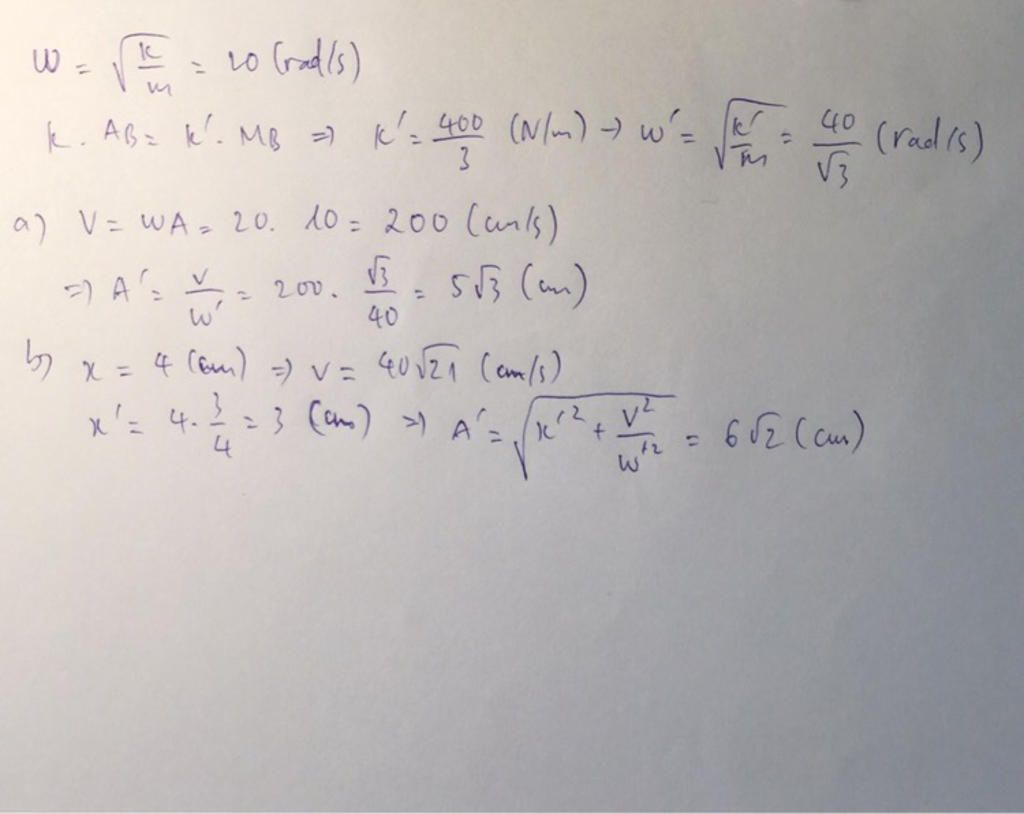 w = √(k/m) = 20 (rad/s)
k. AB = k'. MB ⇒ k' = 400/3 (N/m) → w' = √(k'/m) = 40/√3 (rad/s)
a) V = wA = 20. 10 = 200 (cm/s)
⇒ A' = v/w' = 200. √3/40 = 5√3 (cm)
b) x = 4 (cm) ⇒ v = 40√21 (cm/s)
x' = 4. 3/4 = 3 (cm) ⇒ A' = √(x'² + v²/w'²) = 6√2 (cm)